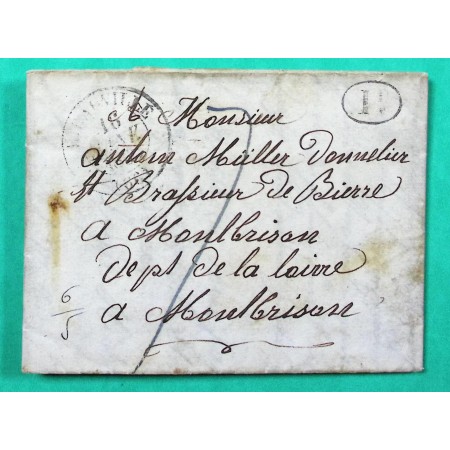 Monsieur
antoin Müller Tonnelier
et Brassieur de Bierre
a Montbrison
dept de la loirre
a Montbrison
6
5
18